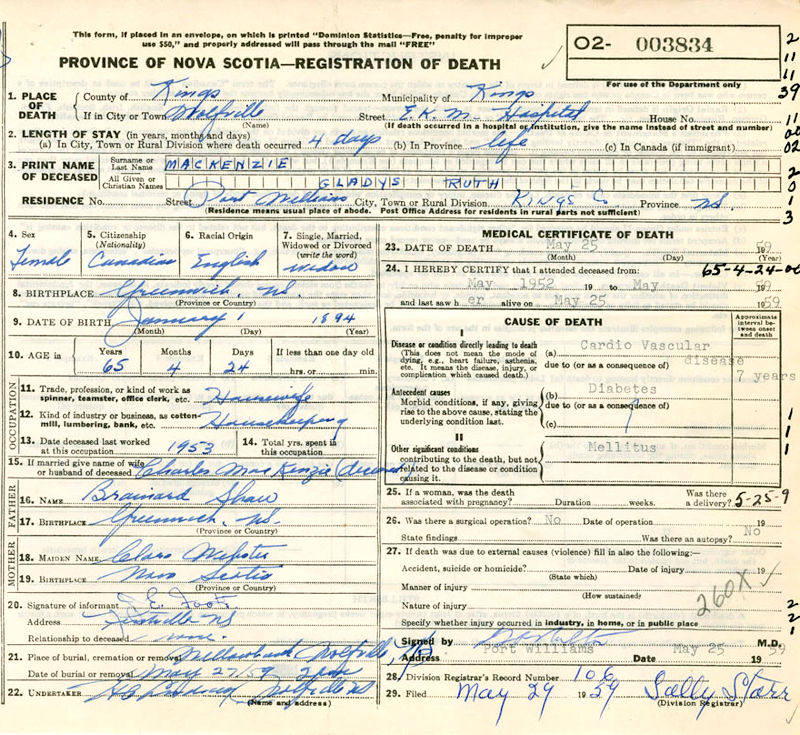 This form, if placed in an envelope, on which is printed "Dominion Statistics—Free, penalty for improper
use $50," and properly addressed will pass through the mail "FREE"
02- 003834
PROVINCE OF NOVA SCOTIA—REGISTRATION OF DEATH
For use of the Department only
2
11
11
39
11
00
02
2
0
1
3
1. PLACE OF DEATH County of Kings Municipality of Kings
If in City or Town Wolfville Street E.K.M. Hospital House No.
(Name) (If death occurred in a hospital or institution, give the name instead of street and number)
2. LENGTH OF STAY (in years, months and days)
(a) In City, Town or Rural Division where death occurred 4 days (b) In Province life (c) In Canada (if immigrant)
3. PRINT NAME OF DECEASED
Surname or Last Name MACKENZIE
All Given or Christian Names GLADYS RUTH
RESIDENCE No. Street Port Williams City, Town or Rural Division Kings Co Province N.S.
(Residence means usual place of abode. Post Office Address for residents in rural parts not sufficient)
4. Sex Female
5. Citizenship (Nationality) Canadian
6. Racial Origin English
7. Single, Married, Widowed or Divorced (write the word) widow
8. BIRTHPLACE Greenwich, N.S.
(Province or Country)
9. DATE OF BIRTH January 1 1894
(Month) (Day) (Year)
10. AGE in Years Months Days If less than one day old
65 4 24 hrs. or min.
OCCUPATION
11. Trade, profession, or kind of work as spinner, teamster, office clerk, etc. Housewife
12. Kind of industry or business, as cotton-mill, lumbering, bank, etc. Housekeeping
13. Date deceased last worked at this occupation 1953 14. Total yrs. spent in this occupation
15. If married give name of wife or husband of deceased Charles MacKenzie
FATHER
16. NAME Brainard Shaw
17. BIRTHPLACE Greenwich, N.S.
(Province or Country)
MOTHER
18. MAIDEN NAME Clara Webster
19. BIRTHPLACE Nova Scotia
(Province or Country)
20. Signature of informant E. Foote
Address N.S.
Relationship to deceased none.
21. Place of burial, cremation or removal Willowbank Wolfville
Date of burial or removal May 27/59 2 pm
22. UNDERTAKER Wolfville NS
(Name and address)
MEDICAL CERTIFICATE OF DEATH
23. DATE OF DEATH May 25 1959
(Month) (Day) (Year)
24. I HEREBY CERTIFY that I attended deceased from: 65-4-24-00
May 1952 19 to May 1959
and last saw h er alive on May 25 1959
CAUSE OF DEATH
Approximate interval between onset and death
I
Disease or condition directly leading to death
(This does not mean the mode of dying, e.g., heart failure, asthenia, etc. It means the disease, injury, or complication which caused death.)
(a) Cardio Vascular disease
due to (or as a consequence of)
7 years
Antecedent causes
Morbid conditions, if any, giving rise to the above cause, stating the underlying condition last.
(b) Diabetes
due to (or as a consequence of)
(c)
II
Other significant conditions contributing to the death, but not related to the disease or condition causing it.
Mellitus
1
1
1
25. If a woman, was the death associated with pregnancy? Duration weeks. Was there a delivery? 5-25-9
26. Was there a surgical operation? No Date of operation 19
State findings Was there an autopsy? No
27. If death was due to external causes (violence) fill in also the following:—
Accident, suicide or homicide? Date of injury 19
(State which)
Manner of injury
(How sustained)
Nature of injury
260X
2
2
1
Specify whether injury occurred in industry, in home, or in public place
Signed by M.D.
Address Port Williams Date May 25 1959
28. Division Registrar's Record Number 106
29. Filed May 29 1959 Sally Starr
(Division Registrar)